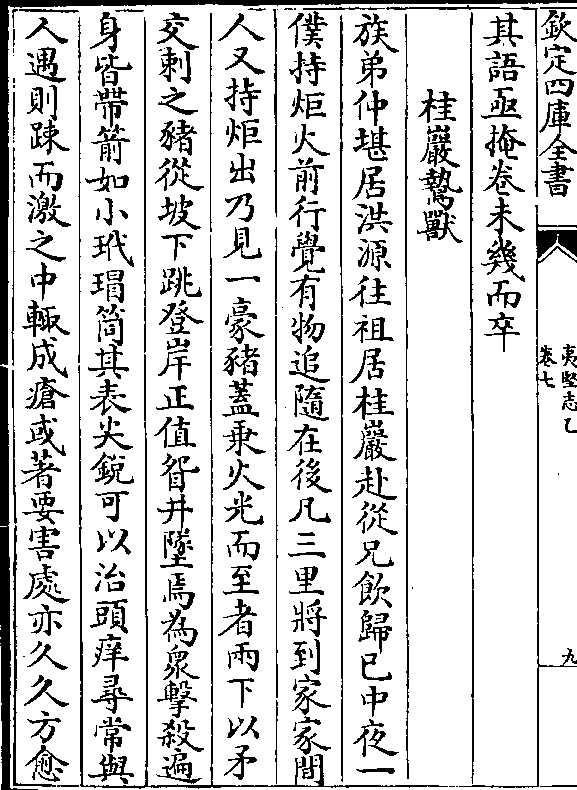 欽定四庫全書
夷堅志乙
卷七
九
其語亟掩卷未幾而卒
桂巖鷙獸
族弟仲堪居洪源往祖居桂巖赴從兄飲歸已中夜一
僕持炬火前行覺有物追隨在後凡三里將到家家間
人又持炬出乃見一豪豬蓋乘火光而至者兩下以矛
交刺之豬從坡下跳登岸正值眢井墜焉為衆擊殺遍
身皆帶箭如小玳瑁筒其表尖銳可以治頭痒尋常與
人遇則踈而激之中輒成瘡或著要害處亦久久方愈